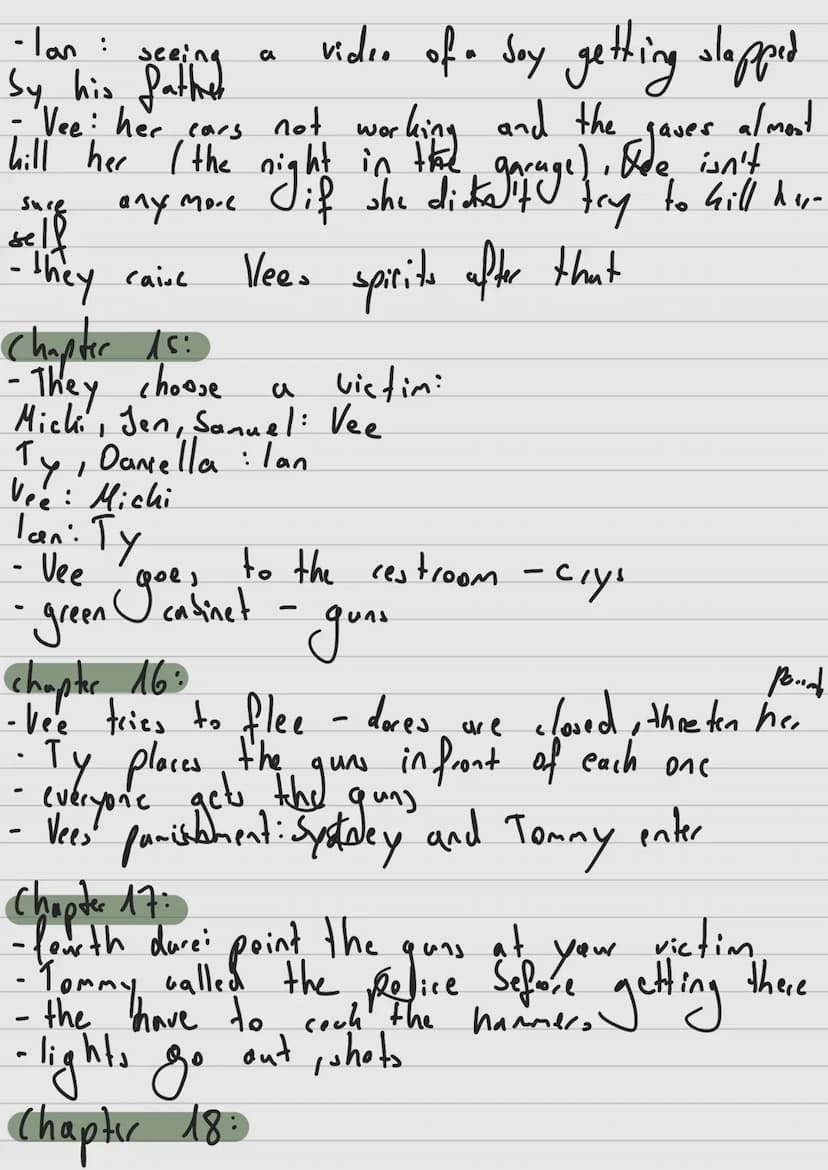 - Ian : seeing a video of a boy getting slapped
by his father
- Vee: her cars not working and the gases almost
kill her (the night in the garage), isn't
sure anymore if she didn't try to kill her-
self
- they raise Vees spirits after that
Chapter 15:
- They choose a victim:
Micki, Jen, Samuel: Vee
Ty, Daniella : Ian
Vee: Micki
Ian: Ty
- Vee goes to the restroom - crys
- green cabinet - guns
chapter 16:
- Vee tries to flee - dores are closed, threten her
- Ty places the guns infront of each one
- everyone gets the guns
- Vees' punishment: Sydney and Tommy enter
Chapter 17:
- fourth dare: point the guns at your victim
- Tommy called the police before getting there
- the have to cock the hammers
- lights go out, shots
Chapter 18: